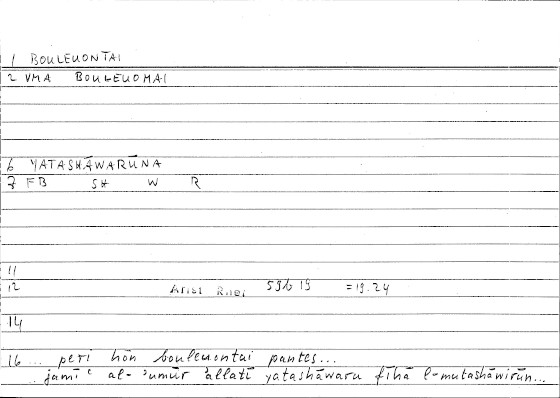 1 BOULEUONTAI
2 VMA BOULEUOMAI
6 YATASHĀWARŪNA
7 FB SH W R
11
12 Arist Rhet 59b 19 =19.24
14
16 ... peri hōn bouleuontai pantes...
.. jamīʿ al-ʾumūr ʾallatī yatashāwaru fīhā l-mutashāwirūn...